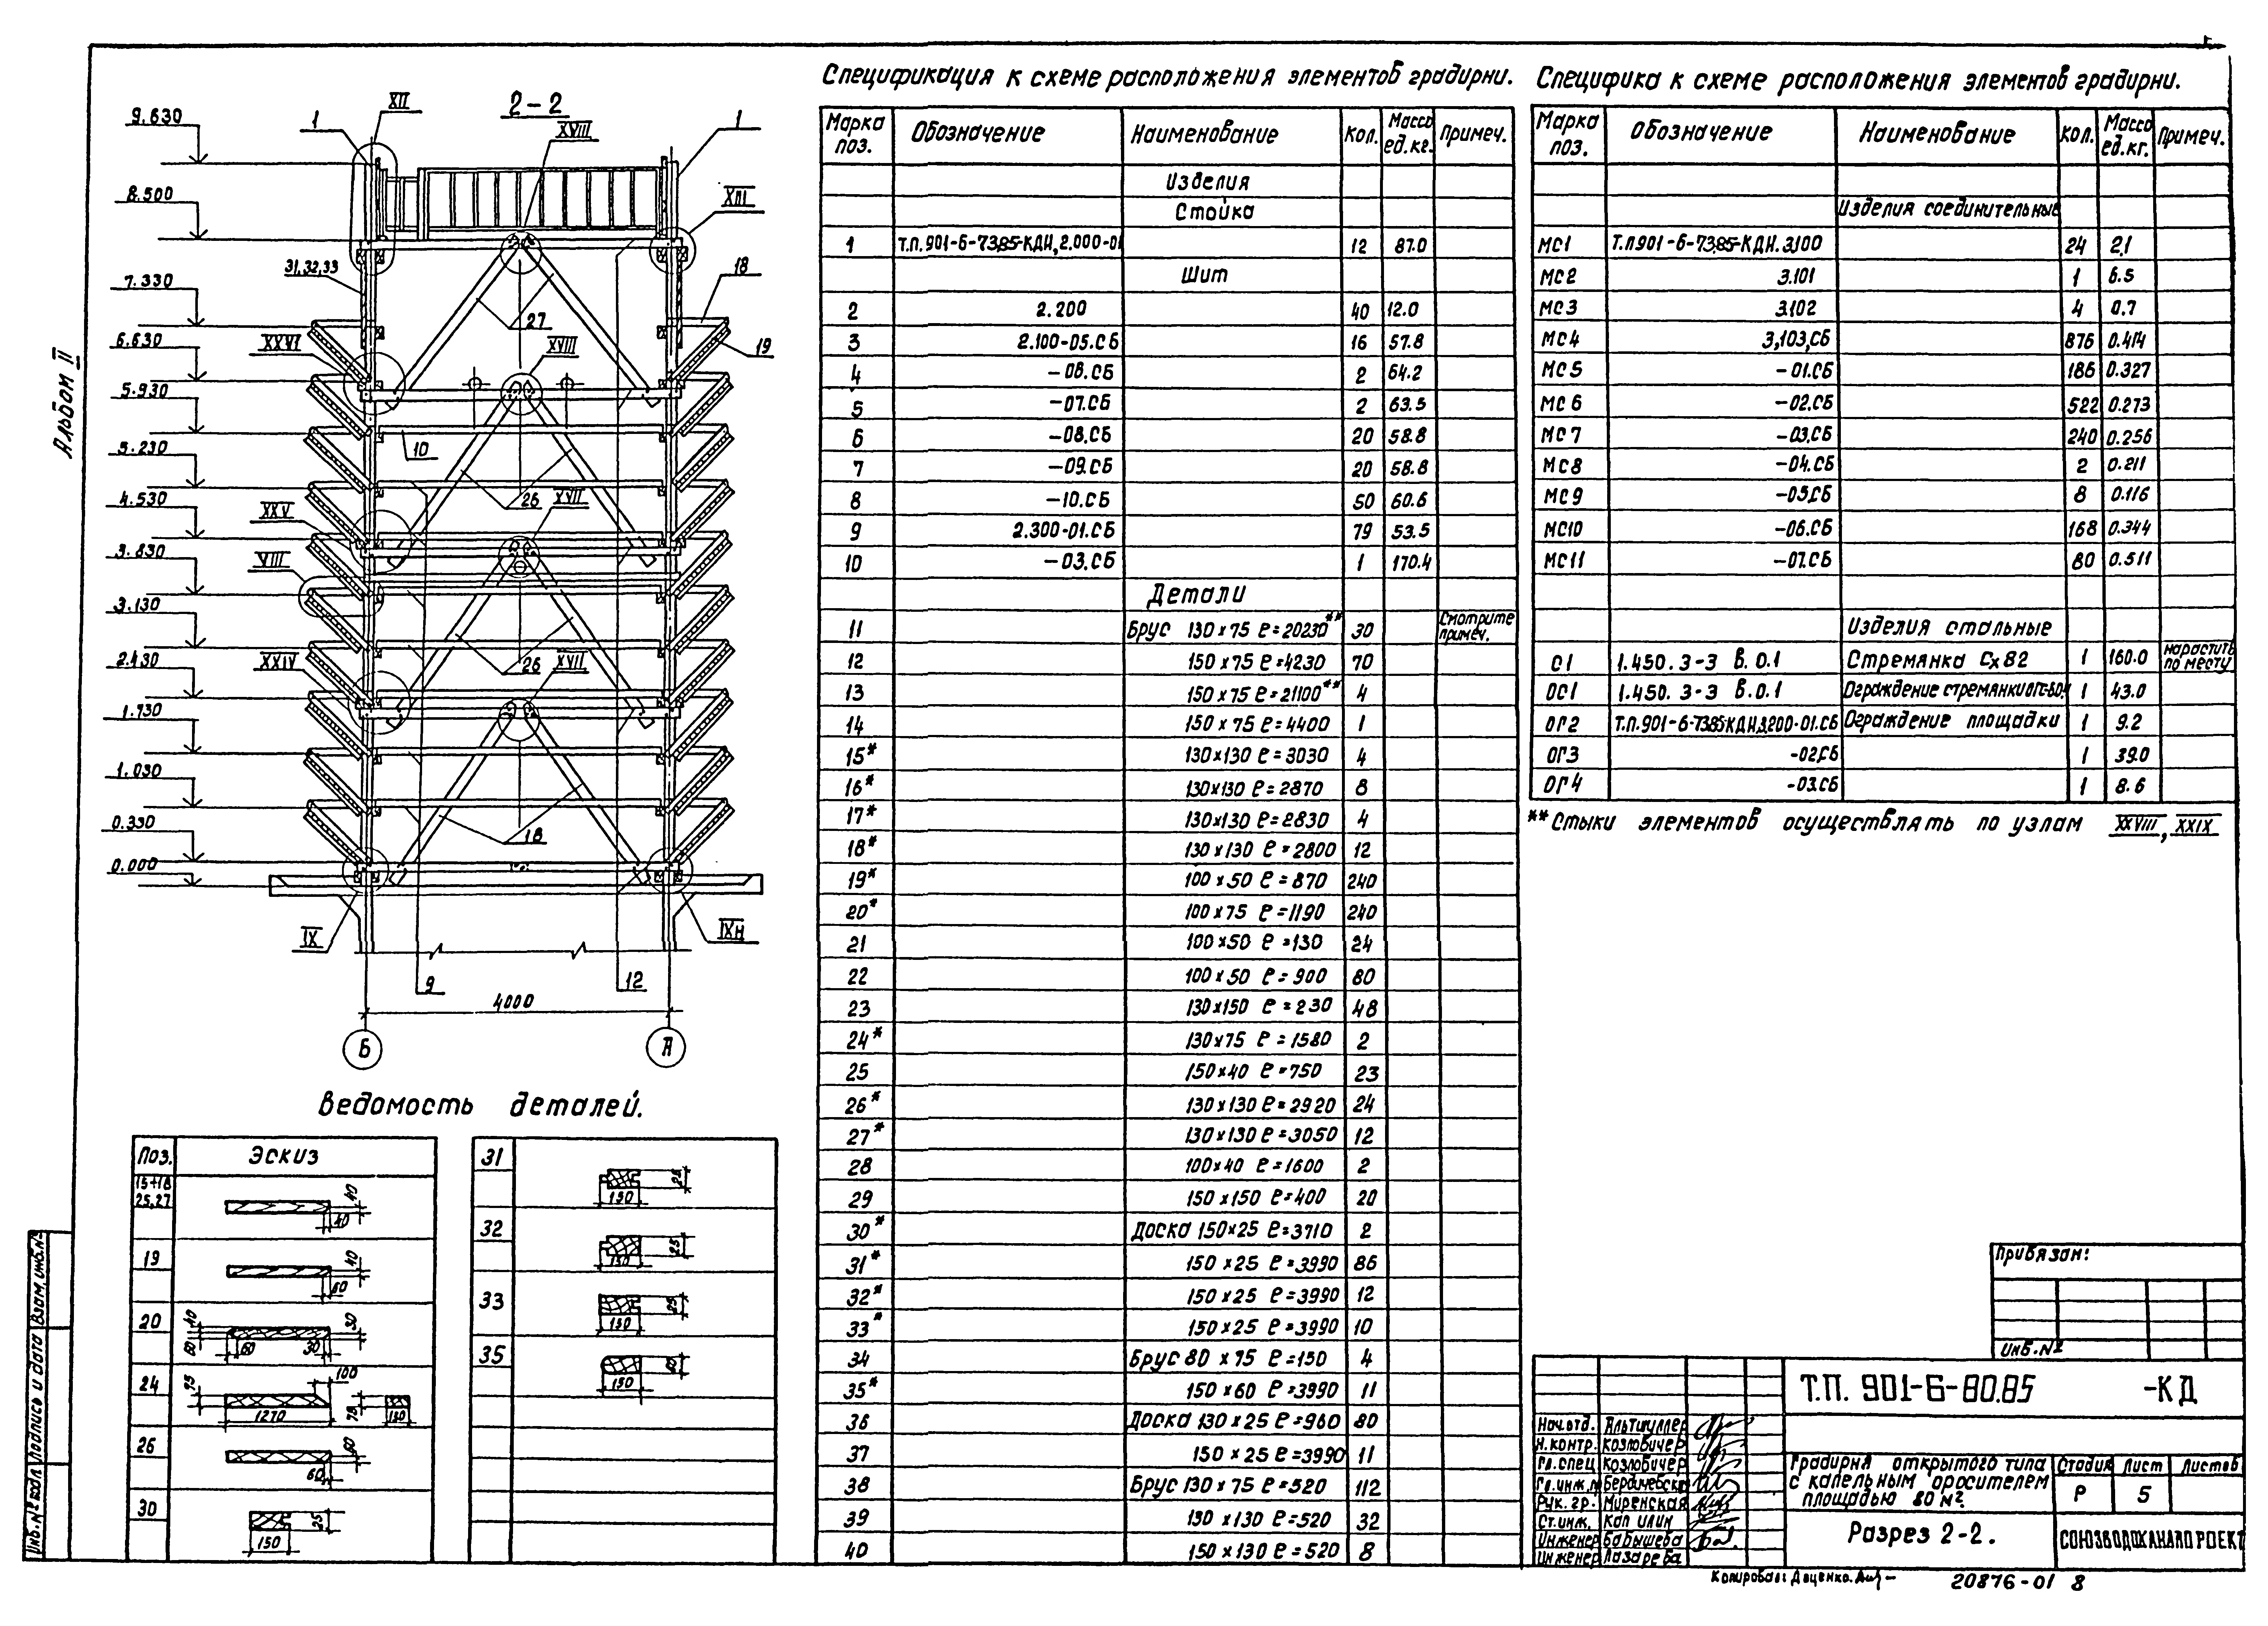 Альбом II
2-2
9.630
8.500
7.330
6.630
5.930
5.230
4.530
3.830
3.130
2.430
1.730
1.030
0.330
0.000
1
XII
XVIII
1
XIII
31,32,33
18
27
XXVI
XVIII
19
10
26
XVII
XXV
VIII
26
XVII
XXIV
18
IX
9
12
4000
Б
А
Ведомость деталей.
Поз. Эскиз
15÷18
25,27
40
40
19
40
60
20
40
60
60
30
30
24
100
75
1270
75
130
26
60
60
30
25
150
31
25
150
32
25
150
33
25
150
35
60
150
Спецификация к схеме расположения элементов градирни.
Марка поз. Обозначение Наименование Кол. Масса ед.кг. Примеч.
Изделия
Стойка
1 Т.П.901-6-73.85-КДИ,2.000-01 12 87.0
Щит
2 2.200 40 12.0
3 2.100-05.СБ 16 57.8
4 -08.СБ 2 64.2
5 -07.СБ 2 63.5
6 -08.СБ 20 58.8
7 -09.СБ 20 58.8
8 -10.СБ 50 60.6
9 2.300-01.СБ 79 53.5
10 -03.СБ 1 170.4
Детали
11 Брус 130х75 ℓ=20230** 30 Смотрите примеч.
12 150х75 ℓ=4230 70
13 150х75 ℓ=21100** 4
14 150х75 ℓ=4400 1
15* 130х130 ℓ=3030 4
16* 130х130 ℓ=2870 8
17* 130х130 ℓ=2830 4
18* 130х130 ℓ=2800 12
19* 100х50 ℓ=870 240
20* 100х75 ℓ=1190 240
21 100х50 ℓ=130 24
22 100х50 ℓ=900 80
23 130х150 ℓ=230 48
24* 130х75 ℓ=1580 2
25 150х40 ℓ=750 23
26* 130х130 ℓ=2920 24
27* 130х130 ℓ=3050 12
28 100х40 ℓ=1600 2
29 150х150 ℓ=400 20
30* Доска 150х25 ℓ=3710 2
31* 150х25 ℓ=3990 86
32* 150х25 ℓ=3990 12
33* 150х25 ℓ=3990 10
34 Брус 80х75 ℓ=150 4
35* 150х60 ℓ=3990 11
36 Доска 130х25 ℓ=960 80
37 150х25 ℓ=3990 11
38 Брус 130х75 ℓ=520 112
39 130х130 ℓ=520 32
40 150х130 ℓ=520 8
Специфика к схеме расположения элементов градирни.
Марка поз. Обозначение Наименование Кол. Масса ед.кг. Примеч.
Изделия соединительные
МС1 Т.П.901-6-73.85-КДИ.3.100 24 2,1
МС2 3.101 1 6.5
МС3 3.102 4 0.7
МС4 3,103,СБ 876 0.414
МС5 -01.СБ 186 0.327
МС6 -02.СБ 522 0.273
МС7 -03.СБ 240 0.256
МС8 -04.СБ 2 0.211
МС9 -05.СБ 8 0.116
МС10 -06.СБ 168 0.344
МС11 -07.СБ 80 0.511
Изделия стальные
С1 1.450.3-3 В.0.1 Стремянка Сх82 1 160.0 нарастить по месту
ОС1 1.450.3-3 В.0.1 Ограждение стремянки 1 43.0
ОГ2 Т.П.901-6-73.85-КДИ.3.200-01.СБ Ограждение площадки 1 9.2
ОГ3 -02.СБ 1 39.0
ОГ4 -03.СБ 1 8.6
**Стыки элементов осуществлять по узлам XXVIII, XXIX
Привязан:
Инв.№
Т.П. 901-6-80.85 -КД
Нач.отд. Альтшуллер
Н.контр. Козловичер
Гл.спец. Козловичер
Гл.инж.пр Бердичевский
Рук.гр. Миренская
Ст.инж. Каплин
Инженер Бабышева
Инженер Лазарева
Градирня открытого типа с капельным оросителем площадью 80 м².
Стадия Лист Листов
Р 5
Разрез 2-2.
СОЮЗВОДОКАНАЛПРОЕКТ
Копировал: Даценко.
20876-01 8
Взам.инв.№
Подпись и дата
Инв.№ подл.